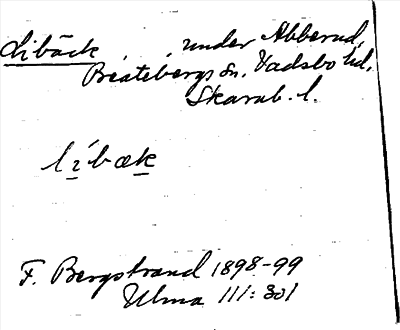 Libäck, under Abberud,
Beatebergs sn, Vadsbo hd,
Skarab. l.
líbæk
F. Bergstrand 1898-99
Ulma 111:301